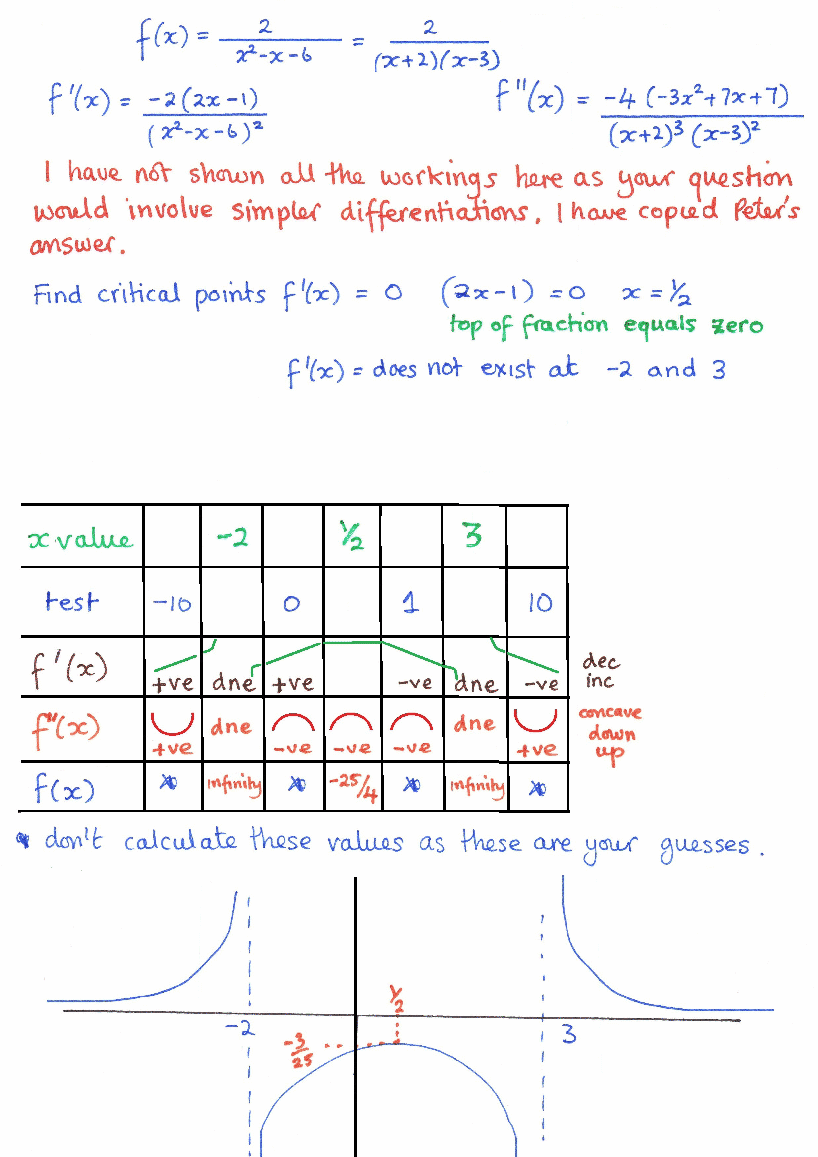 f(x) = 2/(x²-x-6) = 2/((x+2)(x-3))
f'(x) = -2(2x-1)/(x²-x-6)² f"(x) = -4(-3x²+7x+7)/((x+2)³(x-3)²)
I have not shown all the workings here as your question
would involve simpler differentiations. I have copied Peter's
answer.
Find critical points f'(x) = 0 (2x-1) = 0 x = ½
top of fraction equals zero
f'(x) = does not exist at -2 and 3
x value -2 ½ 3
test -10 0 1 10
f'(x) +ve dne +ve -ve dne -ve dec
inc
f"(x) +ve dne -ve -ve -ve dne +ve concave
down
up
f(x) infinity -25/4 infinity
* don't calculate these values as these are your guesses.
½
-2 3
-3/25